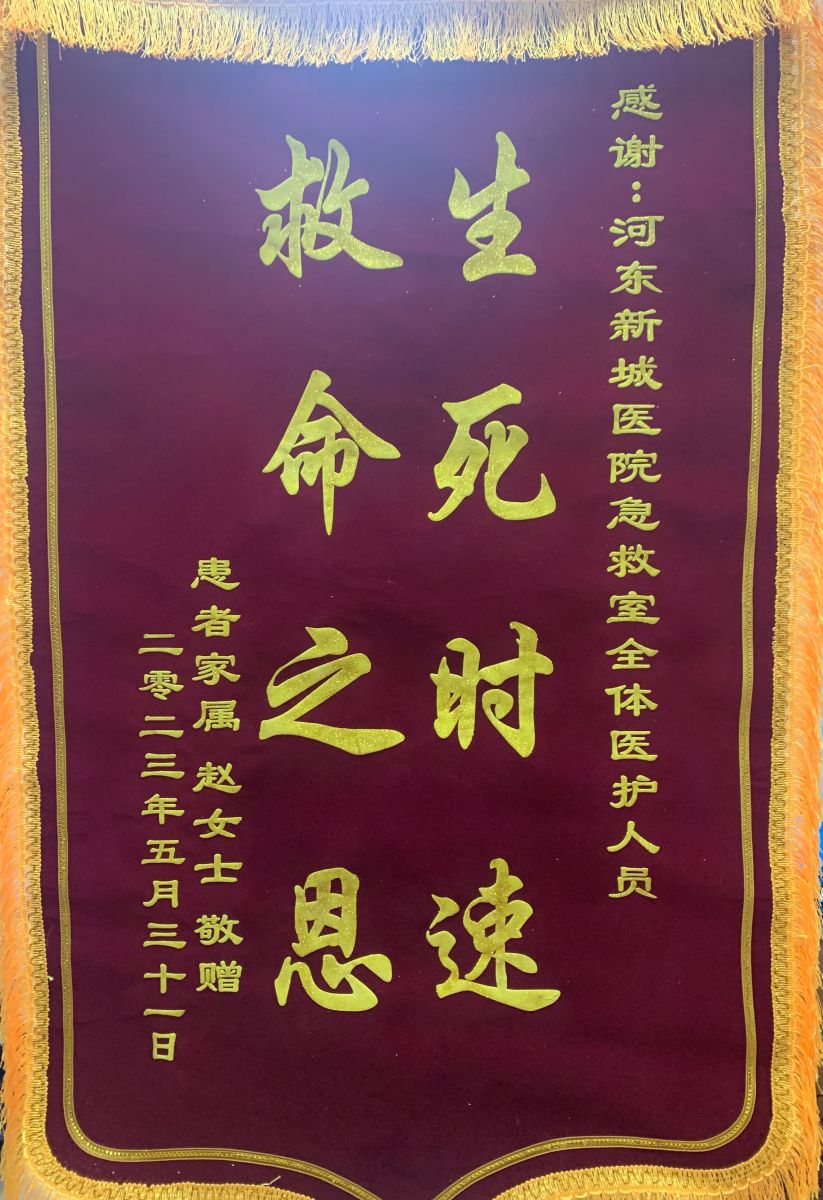 感谢：河东新城医院急救室全体医护人员
生死时速
救命之恩
患者家属 赵女士 敬赠
二零二三年五月三十一日